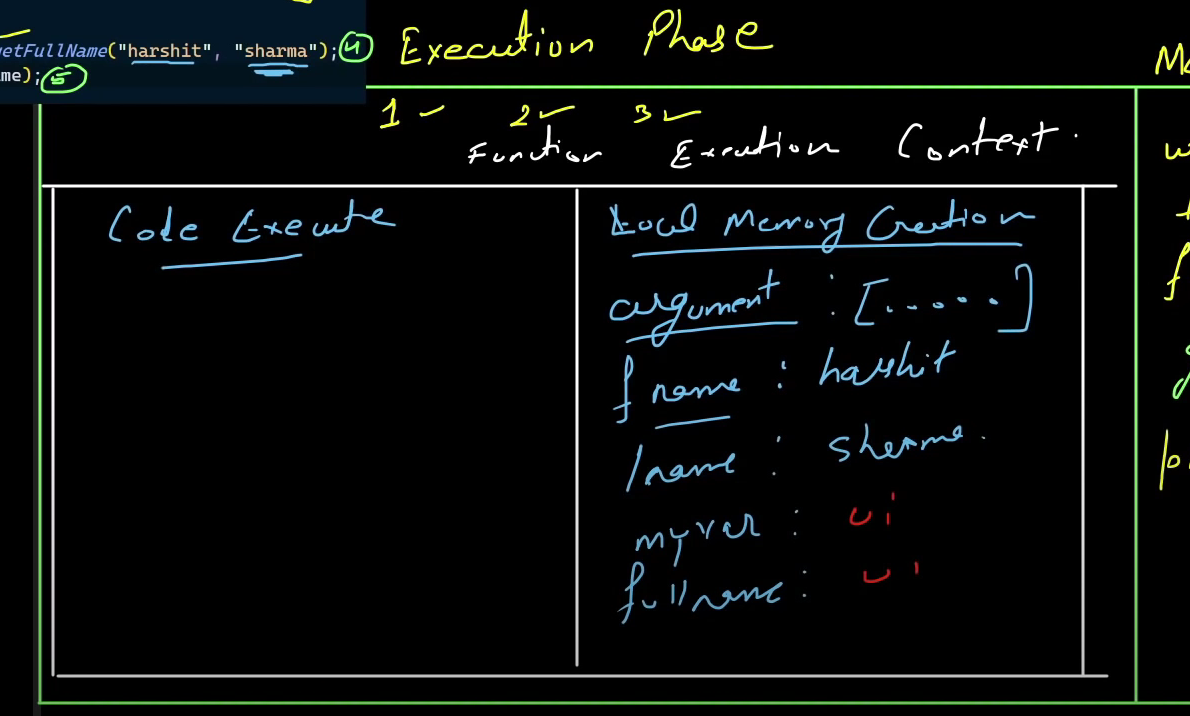 getFullName("harshit", "sharma"); 4
me); 5
Execution Phase
1 2 3
Function Execution Context.
Code Execute
Local Memory Creation
argument : [.....]
fname : harshit
lname : sharma.
myvar : ui
fullname : ui